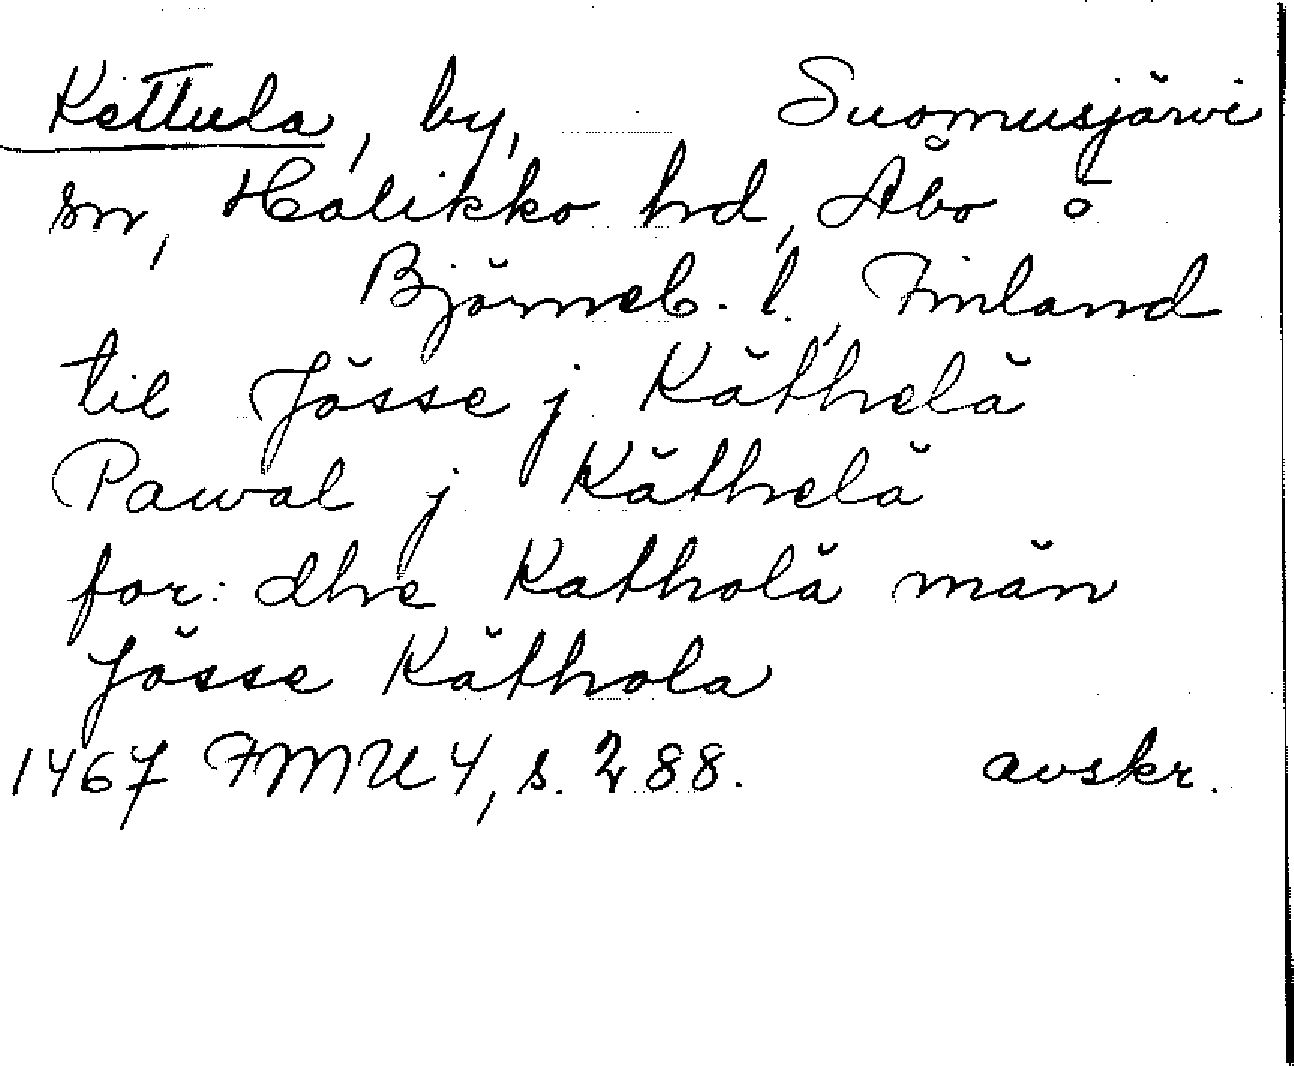 Kettula, by, Suomusjärvi
sn, Halikko hd, Åbo o
Björneb. l., Finland
til Jösse j Käthelä
Pawal j Käthelä
for: dhe Katholä män
Jösse Käthola
1467 FMU 4, s. 288. avskr.